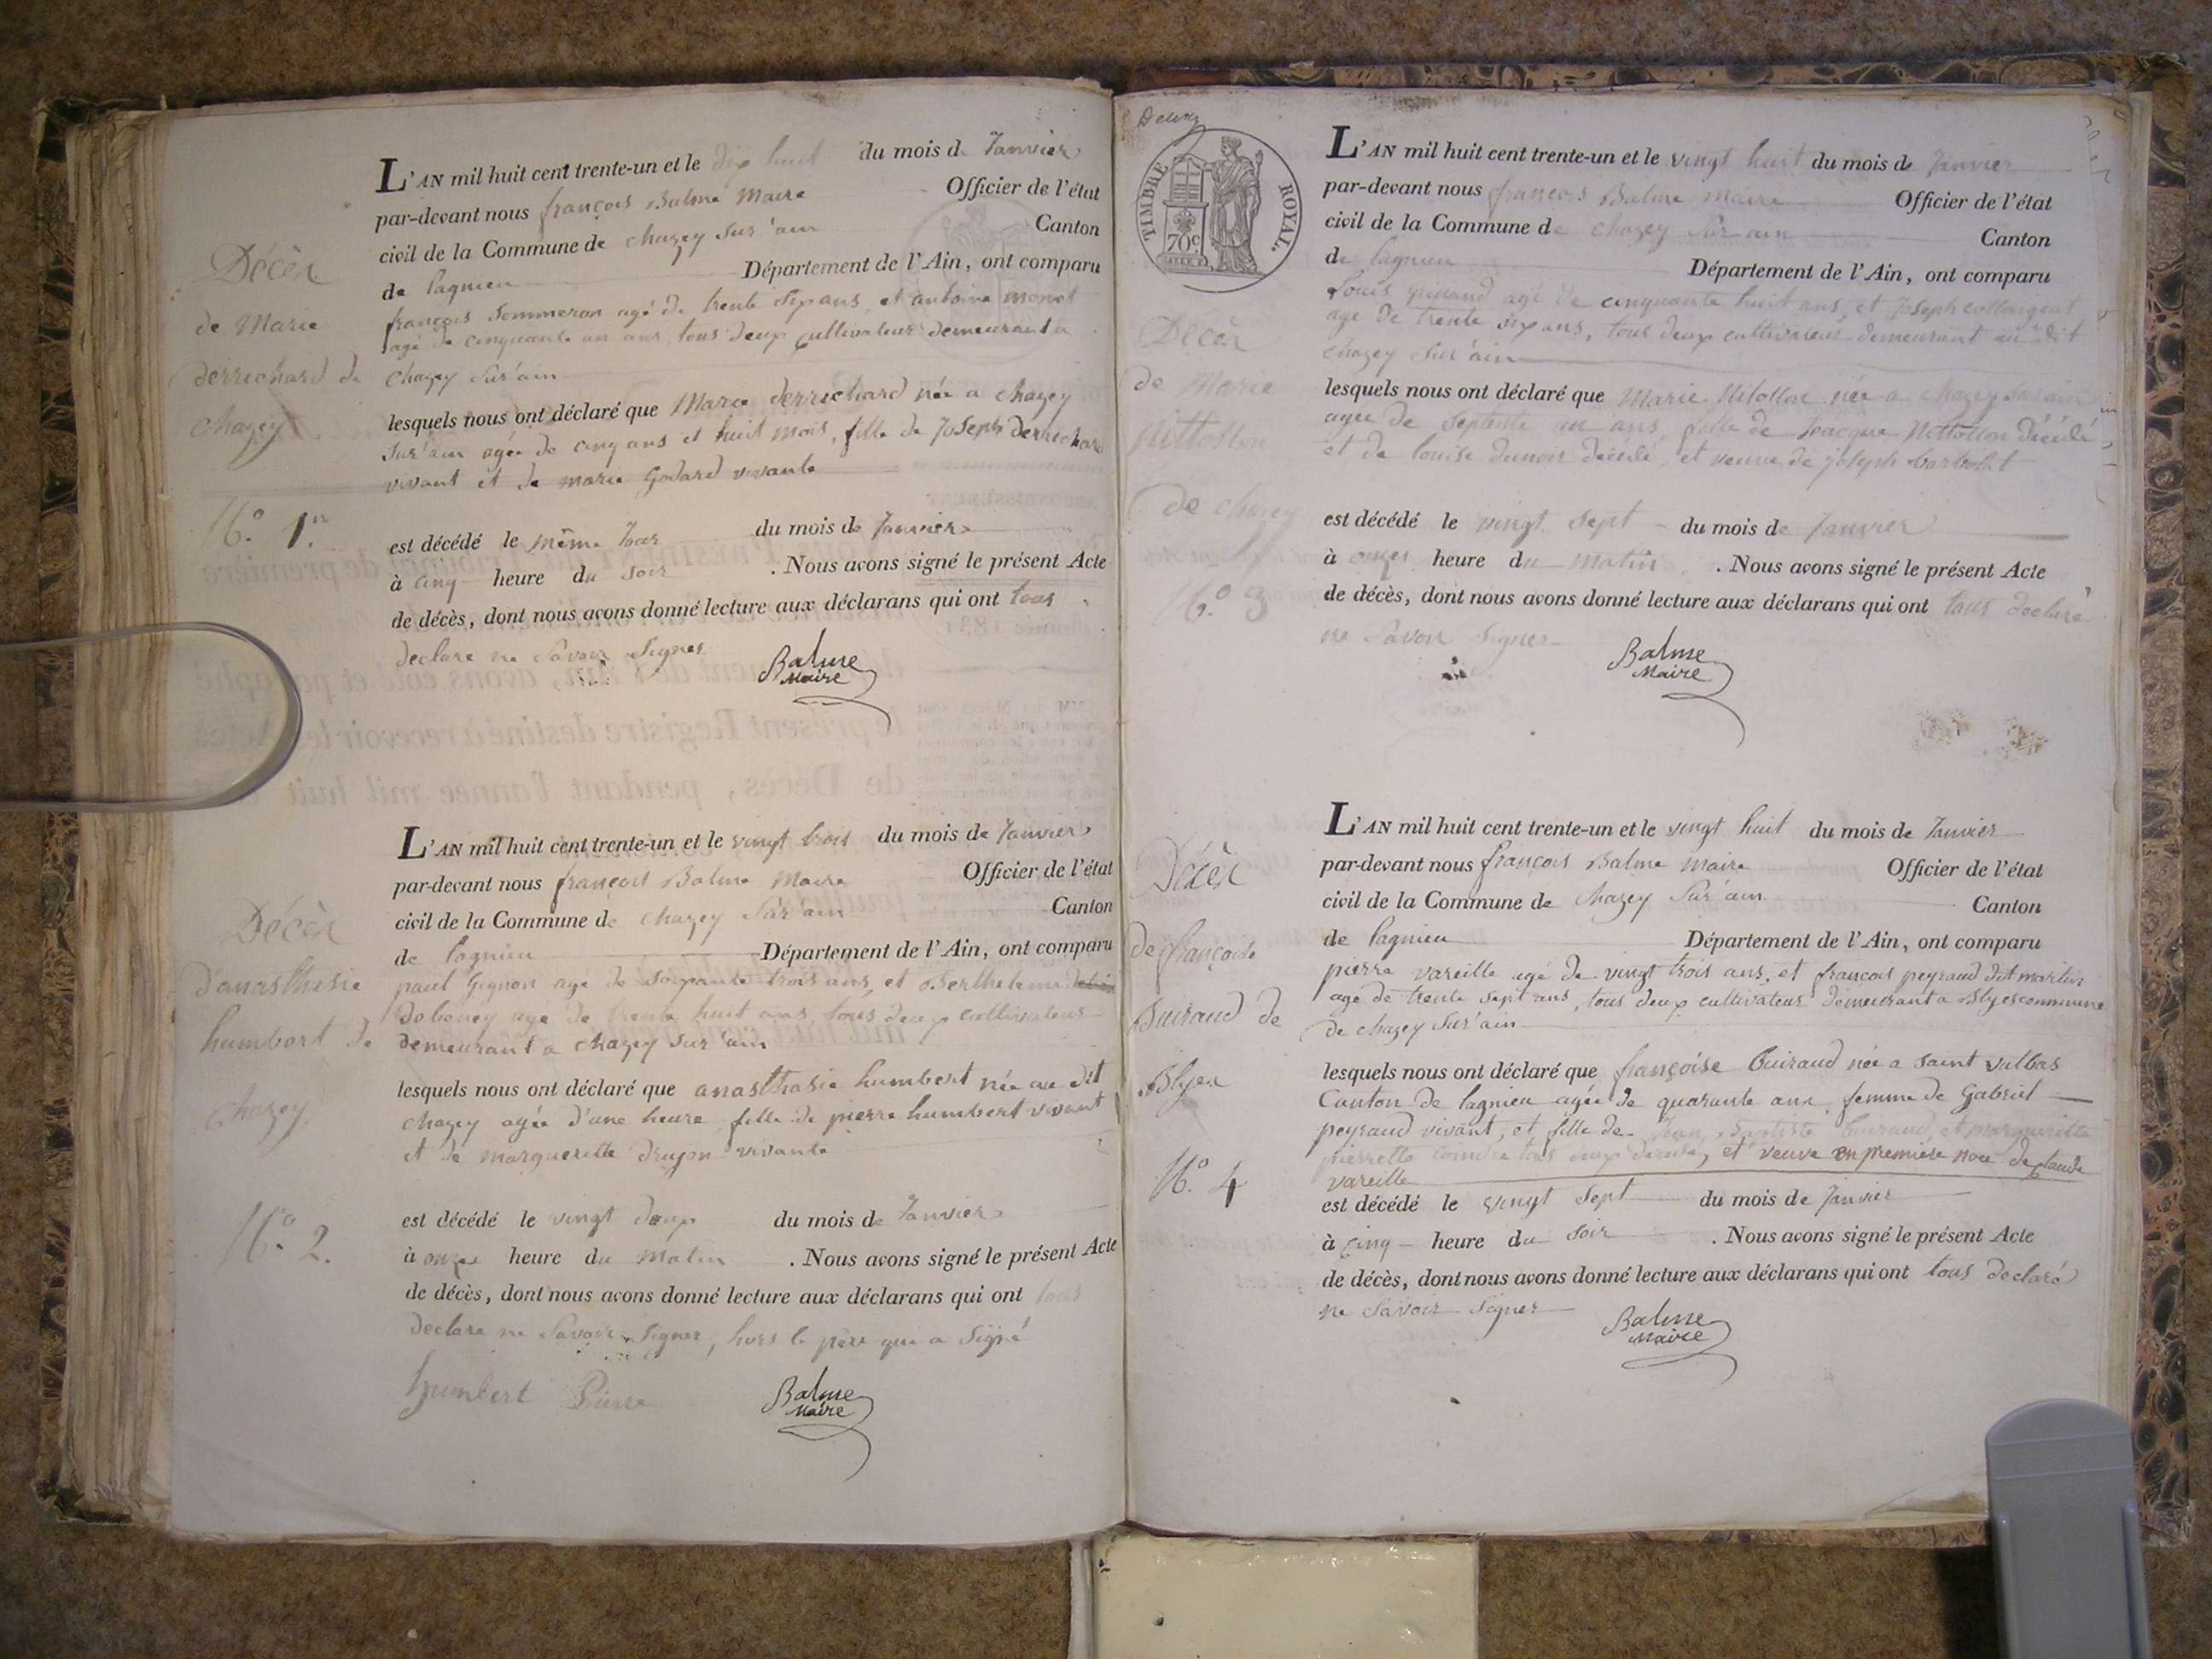 Décès
de Marie
derrichard de
chazey
N.° 1.er
L'AN mil huit cent trente-un et le dix huit du mois de Janvier
par-devant nous françois Balme Maire Officier de l'état
civil de la Commune de chazey sur'ain Canton
de lagnieu Département de l'Ain, ont comparu
françois Sommeron agé de trente six ans, et antoine monet
agé de cinquante un ans, tous deux cultivateur demeurant a
chazey sur'ain
lesquels nous ont déclaré que Marie derrichard née a chazey
sur'ain agée de cinq ans et huit mois, fille de Joseph derrichard
vivant et de marie Godard vivante
est décédé le même Jour du mois de Janvier
à cinq heure du soir . Nous avons signé le présent Acte
de décès, dont nous avons donné lecture aux déclarans qui ont tous
declare ne Savoir Signer
Balme
Maire
Décès
d'anasthasie
humbert de
chazey
N.° 2.
L'AN mil huit cent trente-un et le vingt trois du mois de Janvier
par-devant nous françois Balme Maire Officier de l'état
civil de la Commune de chazey Sur'ain Canton
de lagnieu Département de l'Ain, ont comparu
paul Gignon age de soixante trois ans, et Berthelemi
doboney age de trente huit ans, tous deux cultivateur
demeurant a chazey sur'ain
lesquels nous ont déclaré que anasthasie humbert née au dit
chazey agée d'une heure, fille de pierre humbert vivant
et de marguerite drujon vivante
est décédé le vingt deux du mois de Janvier
à onze heure du Matin . Nous avons signé le présent Acte
de décès, dont nous avons donné lecture aux déclarans qui ont tous
declare ne Savoir Signer, hors le père qui a Signé
humbert Pierre
Balme
Maire
TIMBRE ROYAL.
70c
Décès
de Marie
Nittollon
de chazey
N.° 3
L'AN mil huit cent trente-un et le vingt huit du mois de Janvier
par-devant nous françois Balme maire Officier de l'état
civil de la Commune de chazey Sur ain Canton
de lagnieu Département de l'Ain, ont comparu
Louis agé de cinquante huit ans, et Joseph
age de trente six ans, tous deux cultivateur demeurant au dit
chazey Sur'ain
lesquels nous ont déclaré que Marie Nitollon née a chazey sur ain
agée de septente un ans, fille de Jacque Nittollon décédé
et de louise dunoir décédé, et veuve de Joseph barbolat
est décédé le vingt sept du mois de Janvier
à onzes heure du matin . Nous avons signé le présent Acte
de décès, dont nous avons donné lecture aux déclarans qui ont tous declaré
ne Savoir Signer
Balme
Maire
Décès
de françoise
Buiraud de
Blyes
N.° 4
L'AN mil huit cent trente-un et le vingt huit du mois de Janvier
par-devant nous françois Balme Maire Officier de l'état
civil de la Commune de chazey Sur'ain Canton
de lagnieu Département de l'Ain, ont comparu
pierre vareille agé de vingt trois ans, et françois peyraud dit martin
age de trente sept ans, tous deux cultivateur demeurant a Blyes commune
de chazey Sur'ain
lesquels nous ont déclaré que françoise Buiraud née a saint vulbas
Canton de lagnieu agée de quarante ans, femme de Gabriel
peyraud vivant, et fille de Jean Baptiste buiraud et marguerite
pierrette tous deux décédé, et veuve en première noce de claude
vareille
est décédé le vingt sept du mois de Janvier
à cinq heure du soir . Nous avons signé le présent Acte
de décès, dont nous avons donné lecture aux déclarans qui ont tous declaré
ne savoir Signer
Balme
Maire